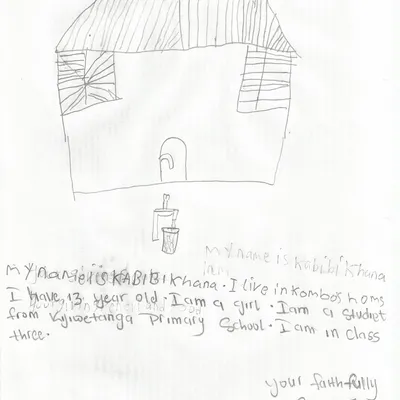 my name is kabibi Khana
iam
My name is KABIBI Khana. I live in Kombos homs
I have 13 year old. I am a girl. I am a studiet
from Vyiwetanga primary School. I am in class
three.
your faith-fully